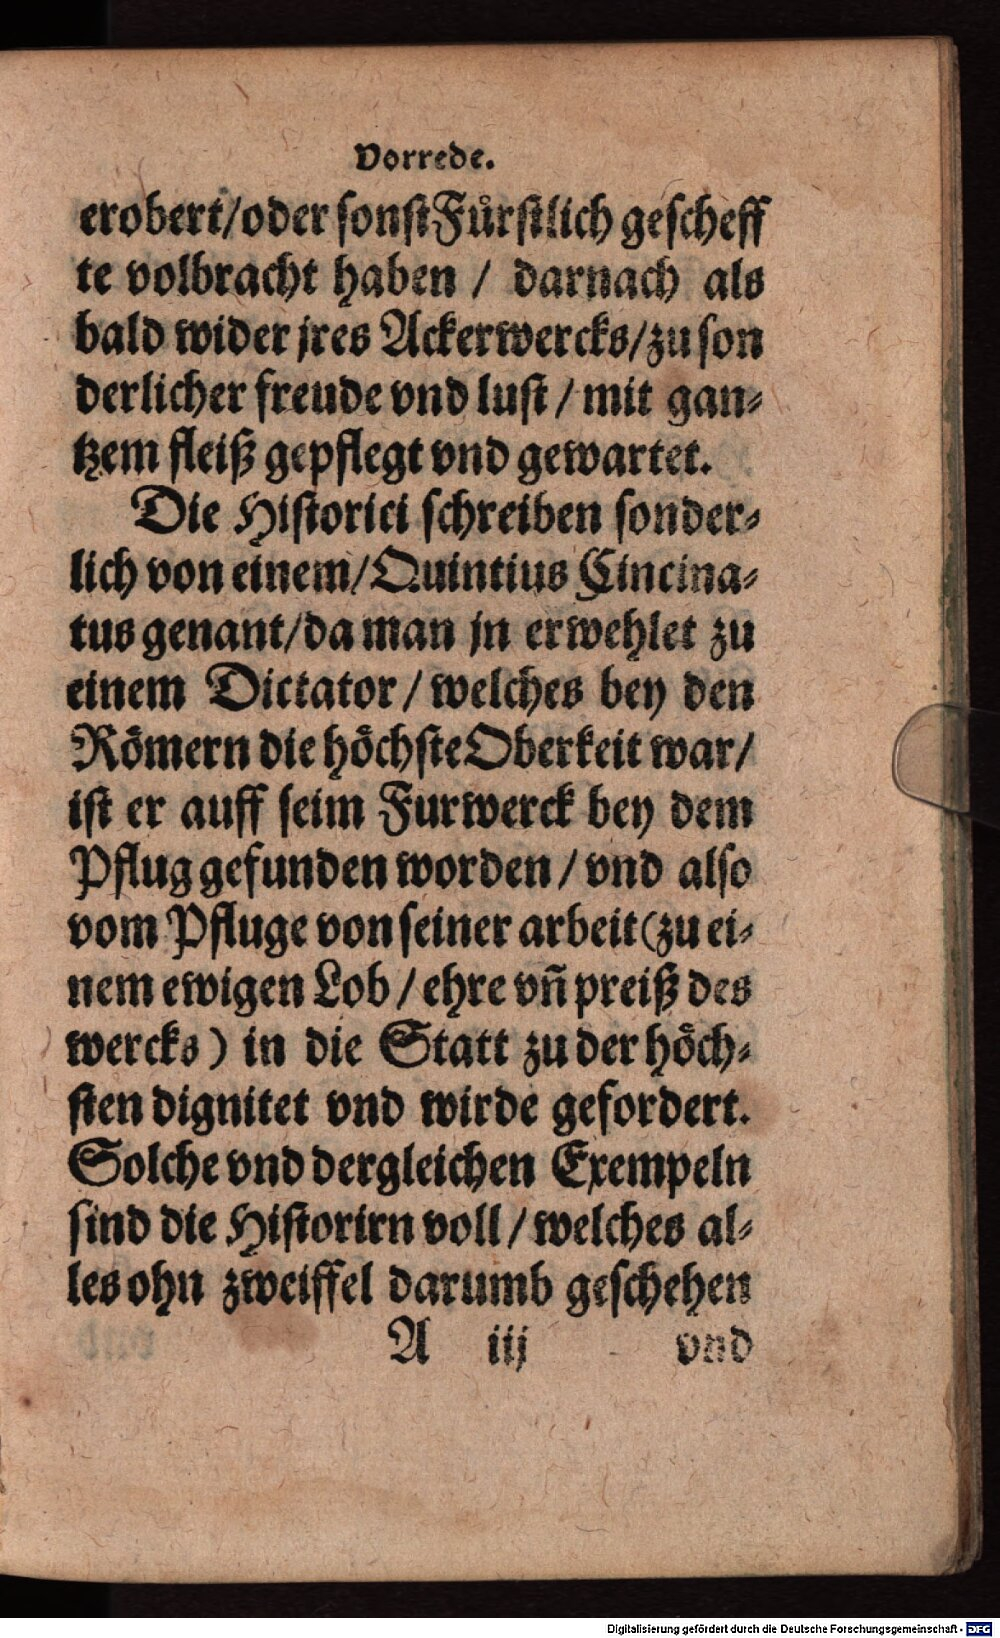 Vorrede.
erobert/oder sonst Fürstlich gescheff
te volbracht haben / darnach als
bald wider jres Ackerwercks/zu son
derlicher freude vnd lust / mit gan-
tzem fleiß gepflegt vnd gewartet.
Die Historici schreiben sonder-
lich von einem/Quintius Cincina-
tus genant/da man jn erwehlet zu
einem Dictator / welches bey den
Römern die höchste Oberkeit war/
ist er auff seim Furwerck bey dem
Pflug gefunden worden / vnd also
vom Pfluge von seiner arbeit (zu ei-
nem ewigen Lob / ehre vñ preiß des
wercks) in die Statt zu der höch-
sten dignitet vnd wirde gefordert.
Solche vnd dergleichen Exempeln
sind die Historirn voll / welches al-
les ohn zweiffel darumb geschehen
A iij vnd
Digitalisierung gefördert durch die Deutsche Forschungsgemeinschaft - DFG